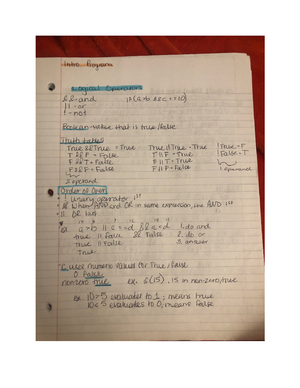 Intro Program
Logical Operators
&&-and if(a>b && c==10)
|| - or
! - not
Boolean-value that is true/false
Truth tables
True && True = True True || True = True !True = F
T && F = False T || F = True !False = T
F && T = False F || T = True
F && F = False F || F = False 1 operand
2 operand
Order of Oper.
* ! unary operator 1st
* && When AND and OR in same expression, use AND 1st
* || OR last
ex. a>b || c==d && c==d 1. do and
true || False && False 2. do or
true || False 3. answer
True
*C uses numeric values for True/False
0 False
nonzero true ex. if(15), 15 is non-zero, true
ex. 10>5 evaluates to 1; means true
10<5 evaluates to 0; means False